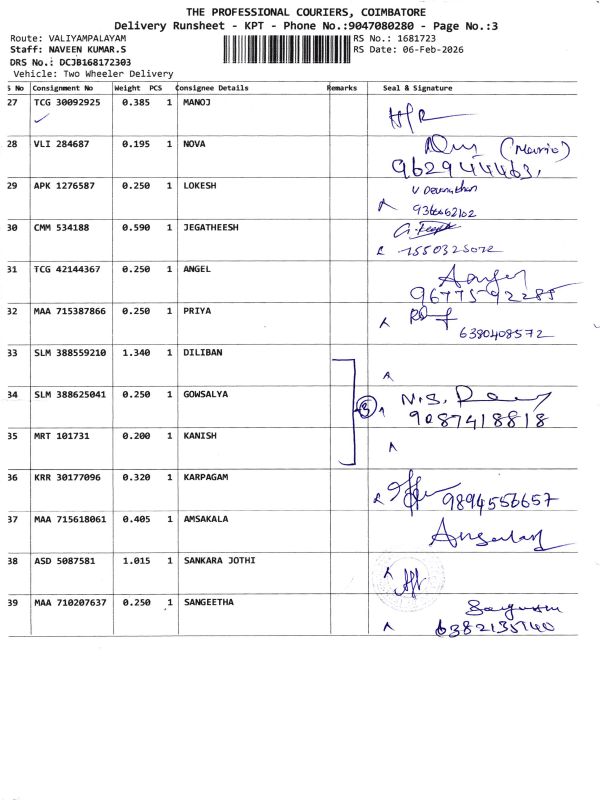 THE PROFESSIONAL COURIERS, COIMBATORE
Delivery Runsheet - KPT - Phone No.:9047080280 - Page No.:3
Route: VALIYAMPALAYAM
RS No.: 1681723
Staff: NAVEEN KUMAR.S
RS Date: 06-Feb-2026
DRS No.: DCJB168172303
Vehicle: Two Wheeler Delivery
S No Consignment No Weight PCS Consignee Details Remarks Seal & Signature
27 TCG 30092925 0.385 1 MANOJ
28 VLI 284687 0.195 1 NOVA
29 APK 1276587 0.250 1 LOKESH
30 CMM 534188 0.590 1 JEGATHEESH
31 TCG 42144367 0.250 1 ANGEL
9677592285
32 MAA 715387866 0.250 1 PRIYA
6380408572
33 SLM 388559210 1.340 1 DILIBAN
34 SLM 388625041 0.250 1 GOWSALYA
3 N.S.
9087418818
35 MRT 101731 0.200 1 KANISH
36 KRR 30177096 0.320 1 KARPAGAM
9894556657
37 MAA 715618061 0.405 1 AMSAKALA
38 ASD 5087581 1.015 1 SANKARA JOTHI
39 MAA 710207637 0.250 1 SANGEETHA
6382135740